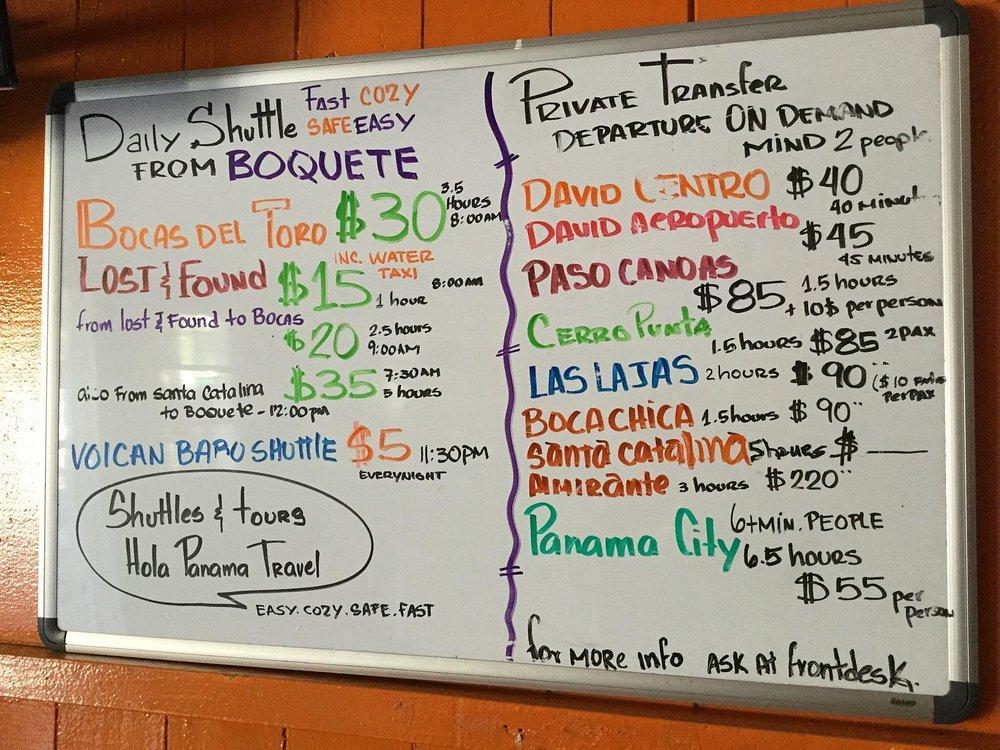 Daily Shuttle Fast COZY
SAFE EASY
FROM BOQUETE
BOCAS DEL TORO $30 3.5 HOURS 8:00AM
INC. WATER TAXI
LOST & FOUND $15 1 hour 8:00AM
from lost & Found to BOCAS
$20 2.5 hours 9:00AM
also From Santa Catalina $35 7:30AM
to Boquete - 12:00pm 5 hours
VOLCAN BARO SHUTTLE $5 11:30PM
EVERYNIGHT
Shuttles & tours
Hola Panama Travel
EASY. COZY. SAFE. FAST
PRIVATE TRANSFER
DEPARTURE ON DEMAND
MIND 2 people
DAVID CENTRO $40
40 MINUT
DAVID AEROPUERTO $45
45 MINUTES
PASO CANOAS 1.5 hours
$85 + 10$ per person
CERRO PUNTA
1.5 hours $85 2PAX
LAS LAJAS 2 hours $90 ($10
per PAX
BOCA CHICA 1.5 hours $90"
Santa Catalina 5 hours $ —
Almirante 3 hours $220"
Panama City 6+MIN. PEOPLE
6.5 hours
$55 per person
for MORE info ASK At frontdesk.